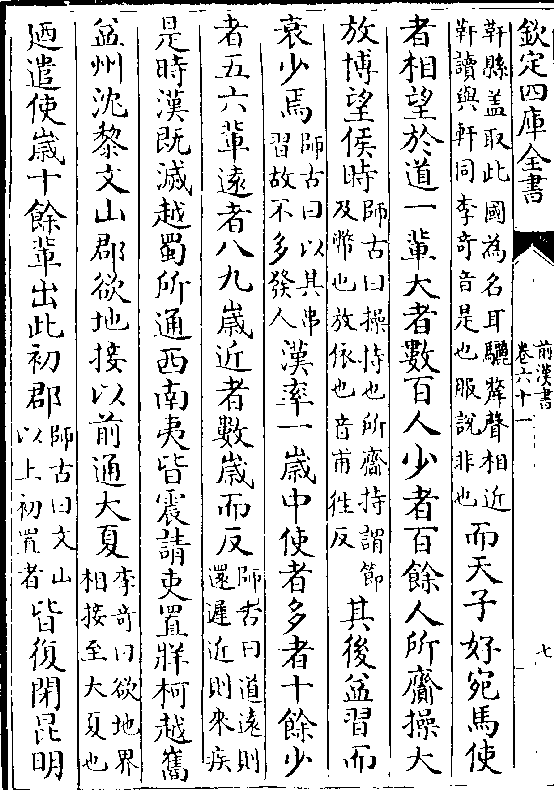 欽定四庫全書
前漢書
卷六十一
七
軒縣盖取此國為名耳驪犛聲相近
靬讀與軒同李竒音是也服說非也
而天子好宛馬使
者相望於道一輩大者數百人少者百餘人所齎操大
放博望侯時
師古曰操持也所齎持謂節
及幣也放依也音甫往反
其後益習而
衰少焉
師古曰以其串
習故不多發人
漢率一嵗中使者多者十餘少
者五六輩遠者八九嵗近者數嵗而反
師古曰道遠則
還遲近則來疾
是時漢既滅越蜀所通西南夷皆震請吏置牂柯越雟
益州沈黎文山郡欲地接以前通大夏
李竒曰欲地界
相接至大夏也
廼遣使嵗十餘輩出此初郡
師古曰文山
以上初置者
皆復閉昆明